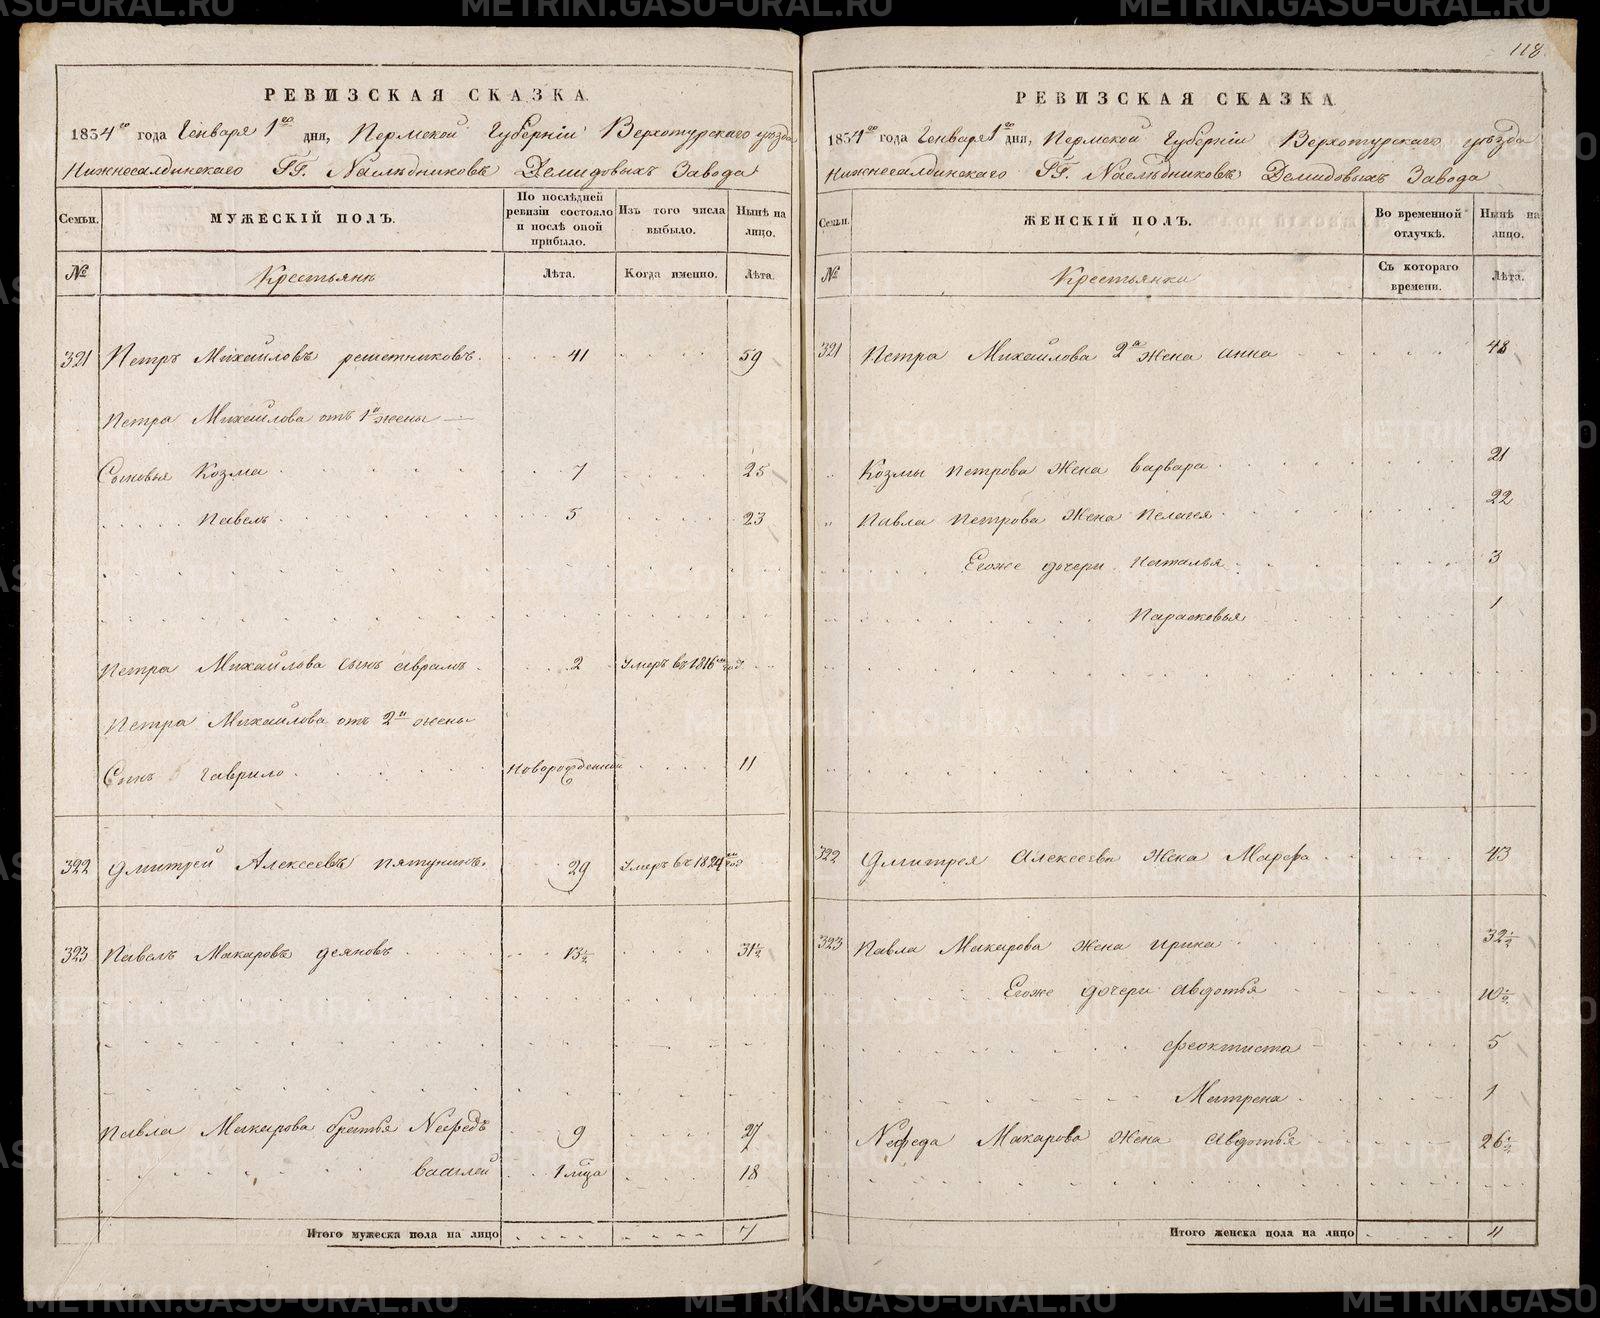 118
РЕВИЗСКАЯ СКАЗКА
1834го года Генваря 1го дня, Пермской Губерніи Верхотурскаго уѣзда
Нижнесалдинскаго ГГ. Наслѣдниковъ Демидовыхъ Завода
Семьи. МУЖЕСКІЙ ПОЛЪ. По послѣдней ревизіи состояло и послѣ оной прибыло. Изъ того числа выбыло. Нынѣ на лицо.
№ Крестьянъ Лѣта. Когда именно. Лѣта.
321 Петръ Михайловъ решетниковъ. 41 59
Петра Михайлова отъ 1й жены
Сыновья Козма 7 25
Павелъ 5 23
Петра Михайлова сынъ аврамъ 2 Умеръ въ 1816м год.
Петра Михайлова отъ 2й жены
Сынъ гаврило Новорожденной 11
322 Дмитрей Алексеевъ пятунинъ. 29 Умеръ въ 1824м год
323 Павелъ Макаровъ деяновъ 13½ 31½
Павла Макарова братья Нефедъ 9 27
василей 1 мца 18
Итого мужеска пола на лицо 7
РЕВИЗСКАЯ СКАЗКА
1834го года Генваря 1го дня, Пермской Губерніи Верхотурскаго уѣзда
Нижнесалдинскаго ГГ. Наслѣдниковъ Демидовыхъ Завода
Семьи. ЖЕНСКІЙ ПОЛЪ. Во временной отлучкѣ. Нынѣ на лицо.
№ Крестьянки Съ котораго времени. Лѣта.
321 Петра Михайлова 2я жена анна 48
Козмы петрова жена варвара 21
Павла петрова жена пелагея 22
Егоже дочери Наталья 3
Парасковья 1
322 Дмитрея алексеева жена Марфа 43
323 Павла Макарова жена ирина 32½
Егоже дочери авдотья 10½
феоктиста 5
Матрена 1
Нефеда Макарова жена авдотья 26½
Итого женска пола на лицо 11
METRIKI.GASO-URAL.RU